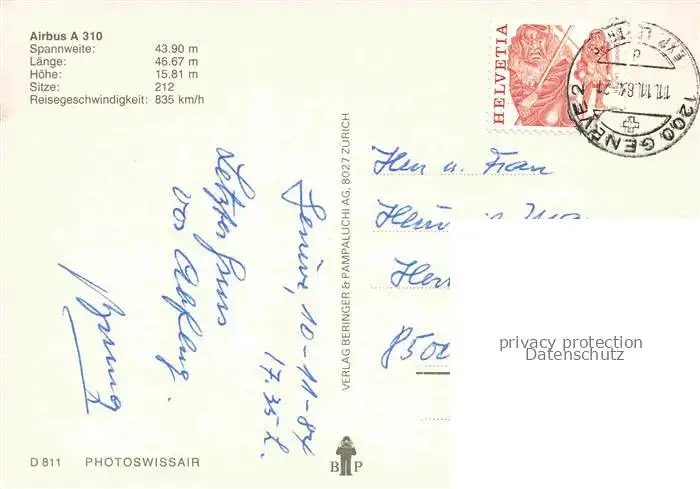 Airbus A 310
Spannweite: 43.90 m
Länge: 46.67 m
Höhe: 15.81 m
Sitze: 212
Reisegeschwindigkeit: 835 km/h
HELVETIA
1200 GENÈVE 2
11.11.84-21
d
Herrn u. Frau
850
privacy protection
Datenschutz
VERLAG BERINGER & PAMPALUCHI AG, 8027 ZÜRICH
10-11-84
17.35 h.
Letzter Gruss
vor Abflug.
D 811 PHOTOSWISSAIR
B P